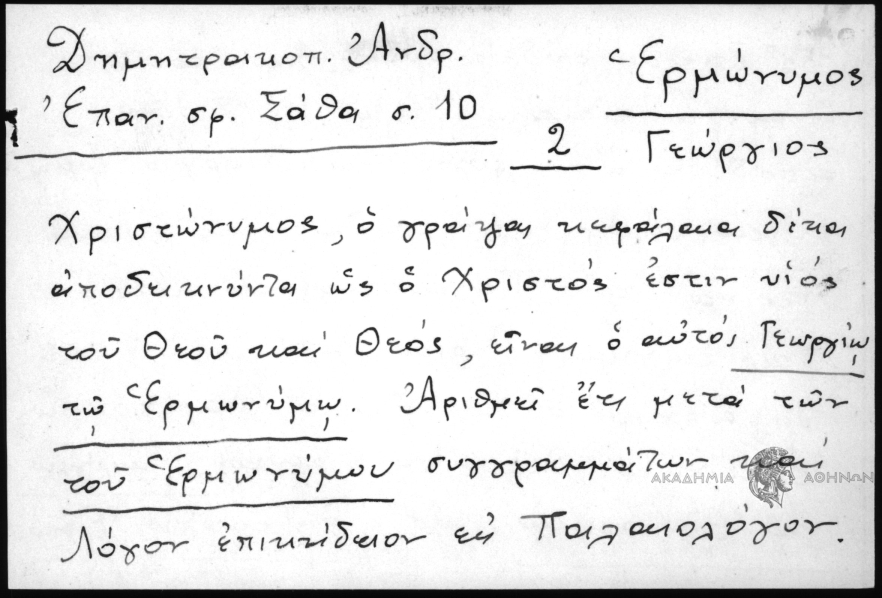 Δημητρακοπ. Ἀνδρ.
Ἐπαν. σφ. Σάθα σ. 10
Ἑρμώνυμος
2 Γεώργιος
Χριστώνυμος, ὁ γράψας κεφάλαια δέκα
ἀποδεικνύντα ὡς ὁ Χριστός ἐστιν υἱός
τοῦ Θεοῦ καί Θεός, εἶναι ὁ αὐτός Γεωργίῳ
τῷ Ἑρμωνύμῳ. Ἀριθμεῖ ἔτι μετά τῶν
τοῦ Ἑρμωνύμου συγγραμμάτων καί
Λόγον ἐπικήδειον εἰς Παλαιολόγον.
ΑΚΑΔΗΜΙΑ ΑΘΗΝΩΝ